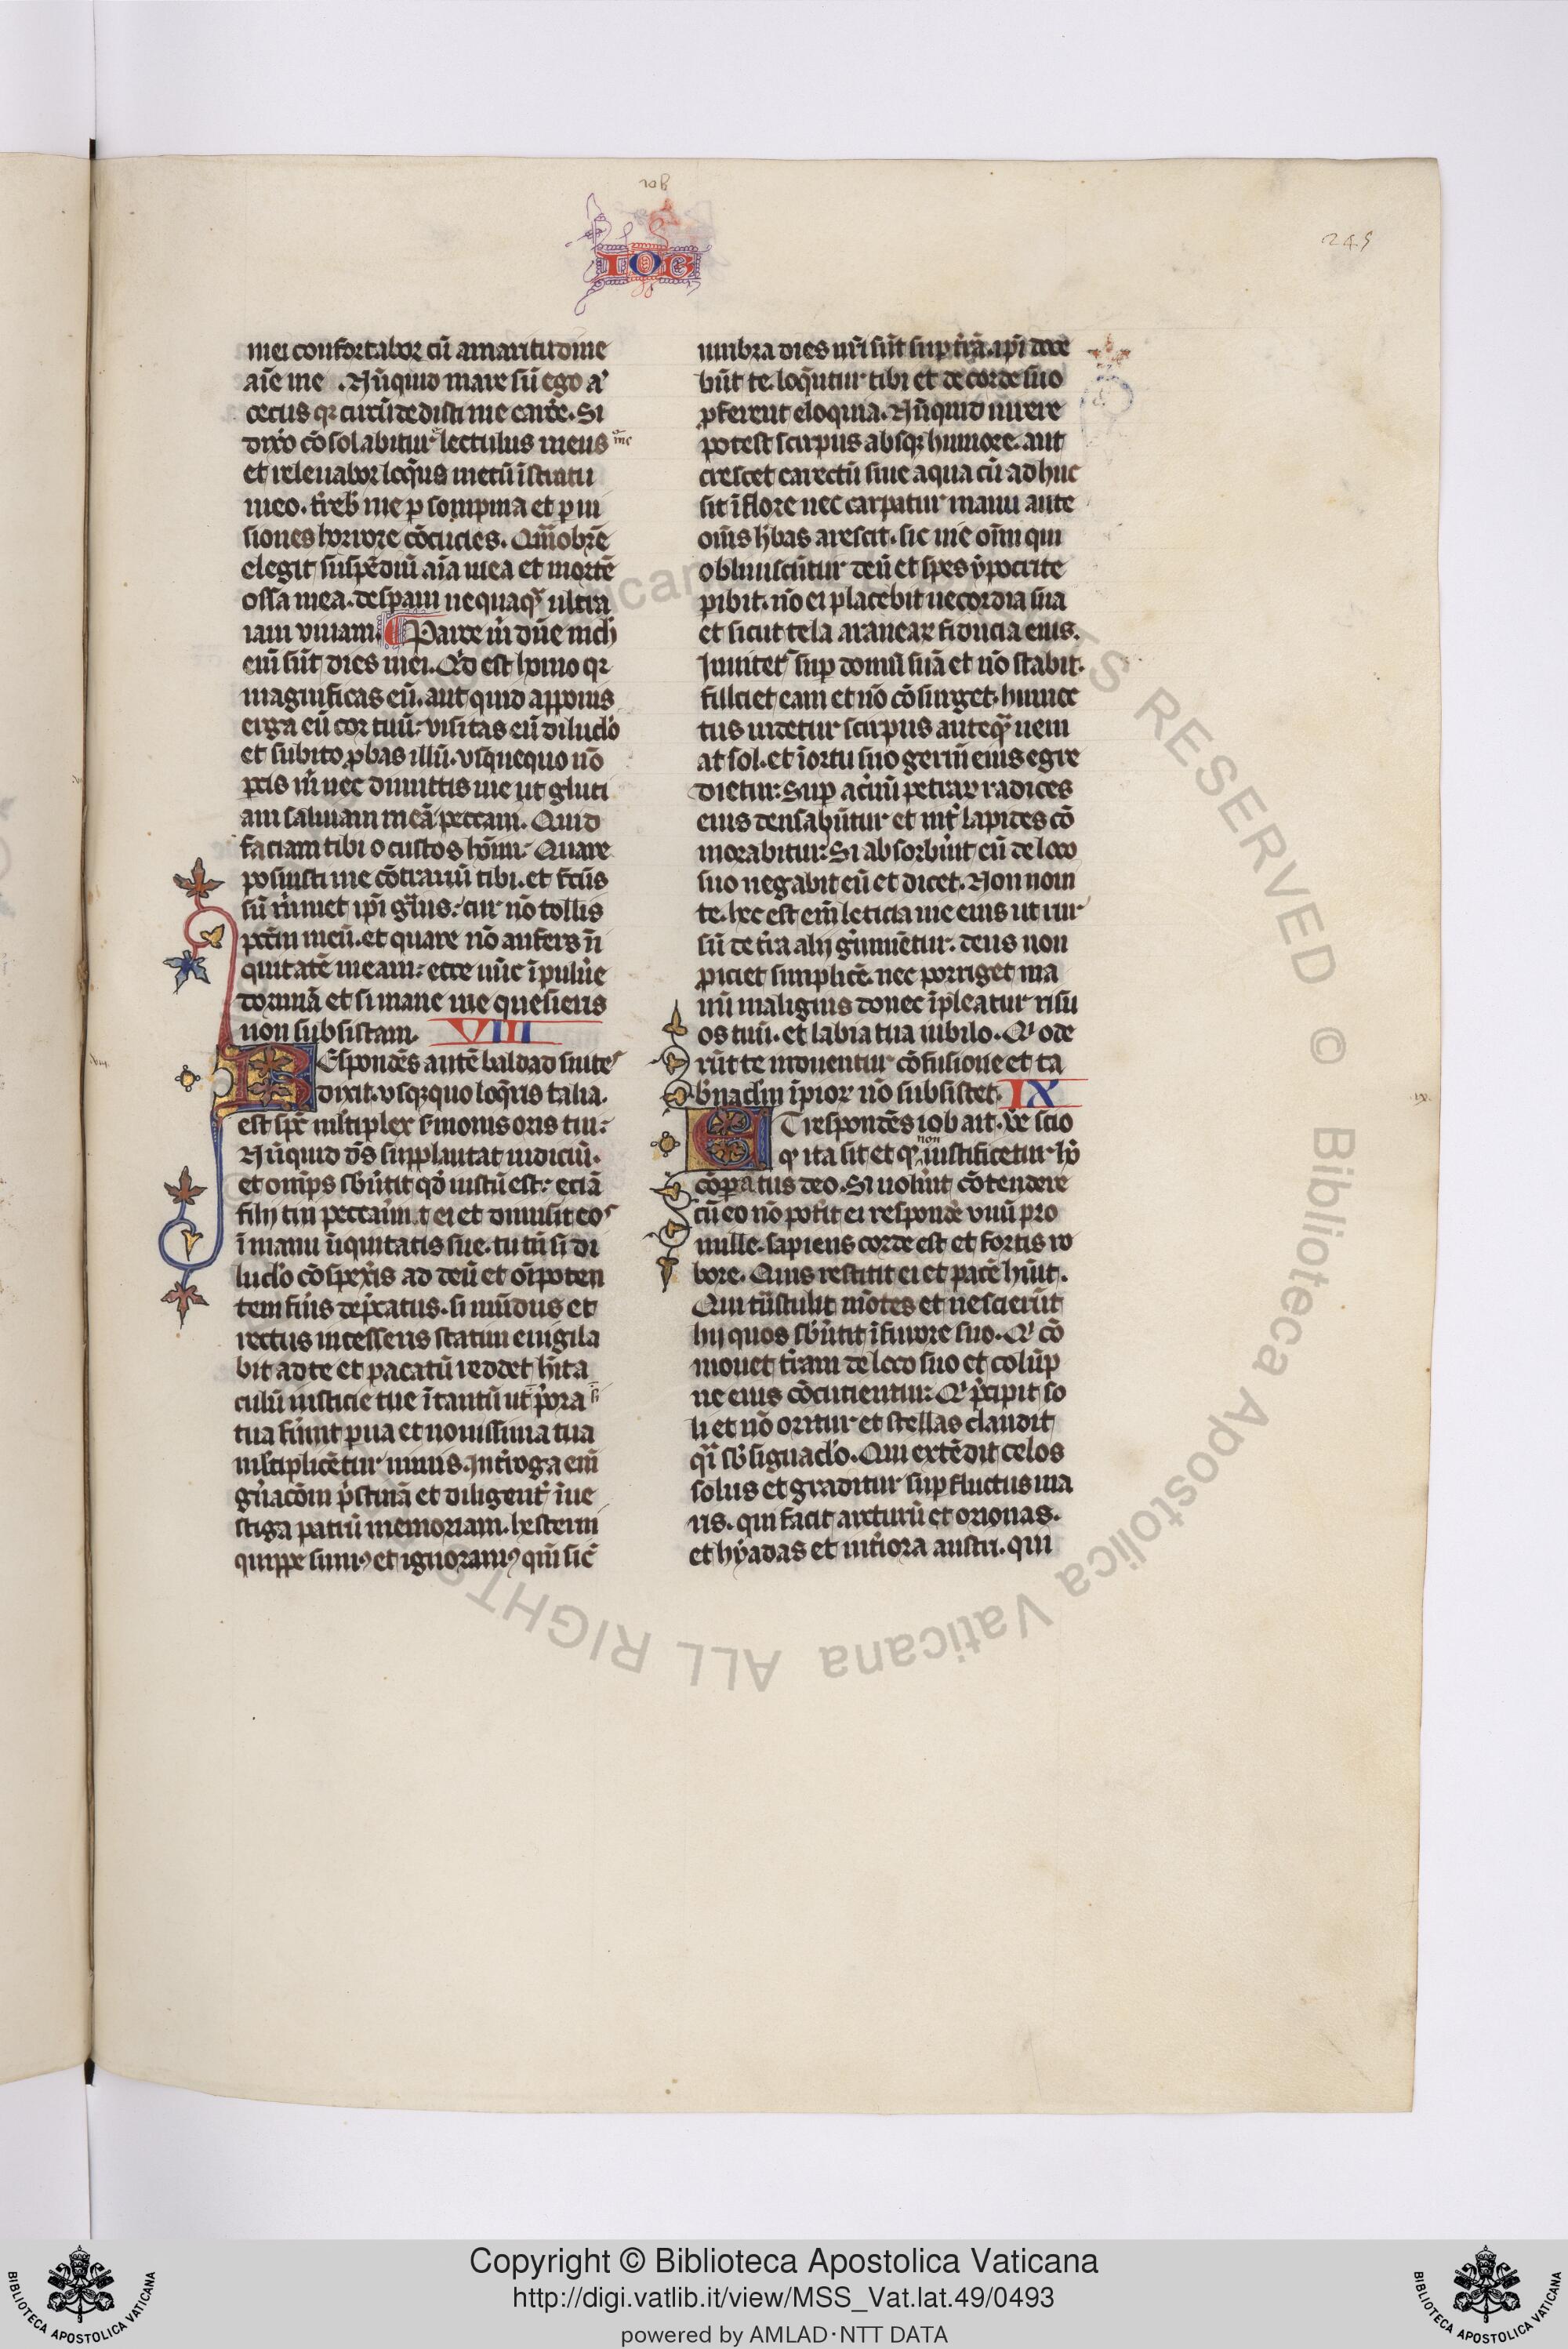 iob
IOB
245
mei confortabor cū amaritudine
aīe me . Nūquid mare sū ego aᵗ
cetus qꝛ circūdedisti me carc̄e. Si
dixo cōsolabitur lectulus meus me
et releuabor loq̄ns mecū ī stratu
meo. tr̄eb me ꝑ sompnia et ꝑ ui
siones horrore cōcucies. Quāobrē
elegit suspēdiū aīa mea et mortē
ossa mea. desꝑaui nequaqᷓ ultra
iam viuam. Parce m̄ dn̄e nich̄
enī sūt dies mei. Qⁱd est homo qꝛ
magnificas eū. aut quid apponis
erga eū cor tuū. visitas eū diluclo
et subito ꝓbas illū. vsquequo nō
ꝑcis m̄ nec dimittis me ut gluti
am saliuam meā peccaui. Quid
faciam tibi o custos hōim. Quare
posuisti me cōtrariū tibi. et fc̄us
sū m̄imet ip̄i gᵃuis. cur nō tollis
pcc̄m meū. et quare nō aufers īi
quitatē meam. ecce nūc ī puluīe
dormiā et si mane me quesieris
non subsistam. VIII
REspondēs autē baldad suites
dixit. vsqꝛquo loq̄ris talia.
est sp̄c multiplex s̄monis oris tui.
Nūquid dš supplantat iudiciū.
et omp̄s sbūtit qḋ iustū est. eciā
filij tui peccaūnt ei et dimisit eos
ī manu īiquitatis sue. tu tn̄ si di
luclo cōspexīs ad deū et oīpoten
tem fūis dep̄catus. si mūdus et
rectus incesseris statim euigila
bit ad te et pacatū reddet h̄ita
culū iusticie tue ī tantū ut p̄ora
tua fūint ꝑua et nouissima tua
multiplicētur nimis. Int̄roga enī
gn̄acōm p̄stinā et diligent̄ īue
stiga patrū memoriam. hesterni
quippe sumꝰ et ignoramꝰ qm̄ sic̄
umbra dies nr̄i sūt suꝑ tr̄ā. ip̄i doce
būt te. loq̄ntur tibi et de corde suo
ꝓferent eloquia. Nūquid uirere
potest scirpus absqꝛ humore. aut
crescet carectū sine aqua cū adhuc
sit ī flore nec carpatur manu ante
oīns h̄bas arescit. sic uie oīm qui
obliuiscūtur deū et spes ypocrite
ꝑibit. nō ei placebit uecordia sua
et sicut tela aranearꝝ fiducia eius.
Innitet᷑ suꝑ domū suā et nō stabit.
fulciet eam et nō cōsurget. humec
tus uidetur scirpus anteqᷓ ueni
at sol. et ī ortu suo germē eius egre
dietur. Suꝑ aceruū petrarꝝ radices
eius densabūtur et int̄ lapides cō
morabitur. Si absorbūit eū de loco
suo negabit eū et dicet. Non noui
te. hec est enī leticia uie eius ut rur
sū de tr̄a alij gīminētur. deus non
ꝓiciet simplicē. nec porriget ma
nū malignis donec īpleatur risū
os tuū. et labia tua iubilo. Qⁱ ode
rūt te induentur cōfusione et ta
b̄nacl̄m īpiorꝝ nō subsistet. IX
ET respondēs iob ait. ve scio
qᵈ ita sit et qᵈ non iustificetur hō
cōꝑatus deo. Si uolūit cōtendere
cū eo nō potīt ei respondē vnū pro
mille. sapiens corde est et fortis ro
bore. Quis restitit ei et pacē hūit.
Qui trāstulit mōtes et nescierūt
hij quos sbūtit ī furore suo. Qⁱ cō
mouet tr̄am de loco suo et colūp
ne eius cōcutientur. Qⁱ p̄cipit so
li et nō oritur et stellas claudit
qᵃi sb̄ signaclo. Qui extēdit celos
solus et graditur suꝑ fluctus ma
ris. qui facit arcturū et orionas.
et hyadas et int̄iora austri. qui
© Biblioteca Apostolica Vaticana ALL RIGHTS RESERVED
Copyright © Biblioteca Apostolica Vaticana
http://digi.vatlib.it/view/MSS_Vat.lat.49/0493
powered by AMLAD·NTT DATA
BIBLIOTECA APOSTOLICA VATICANA
BIBLIOTECA APOSTOLICA VATICANA